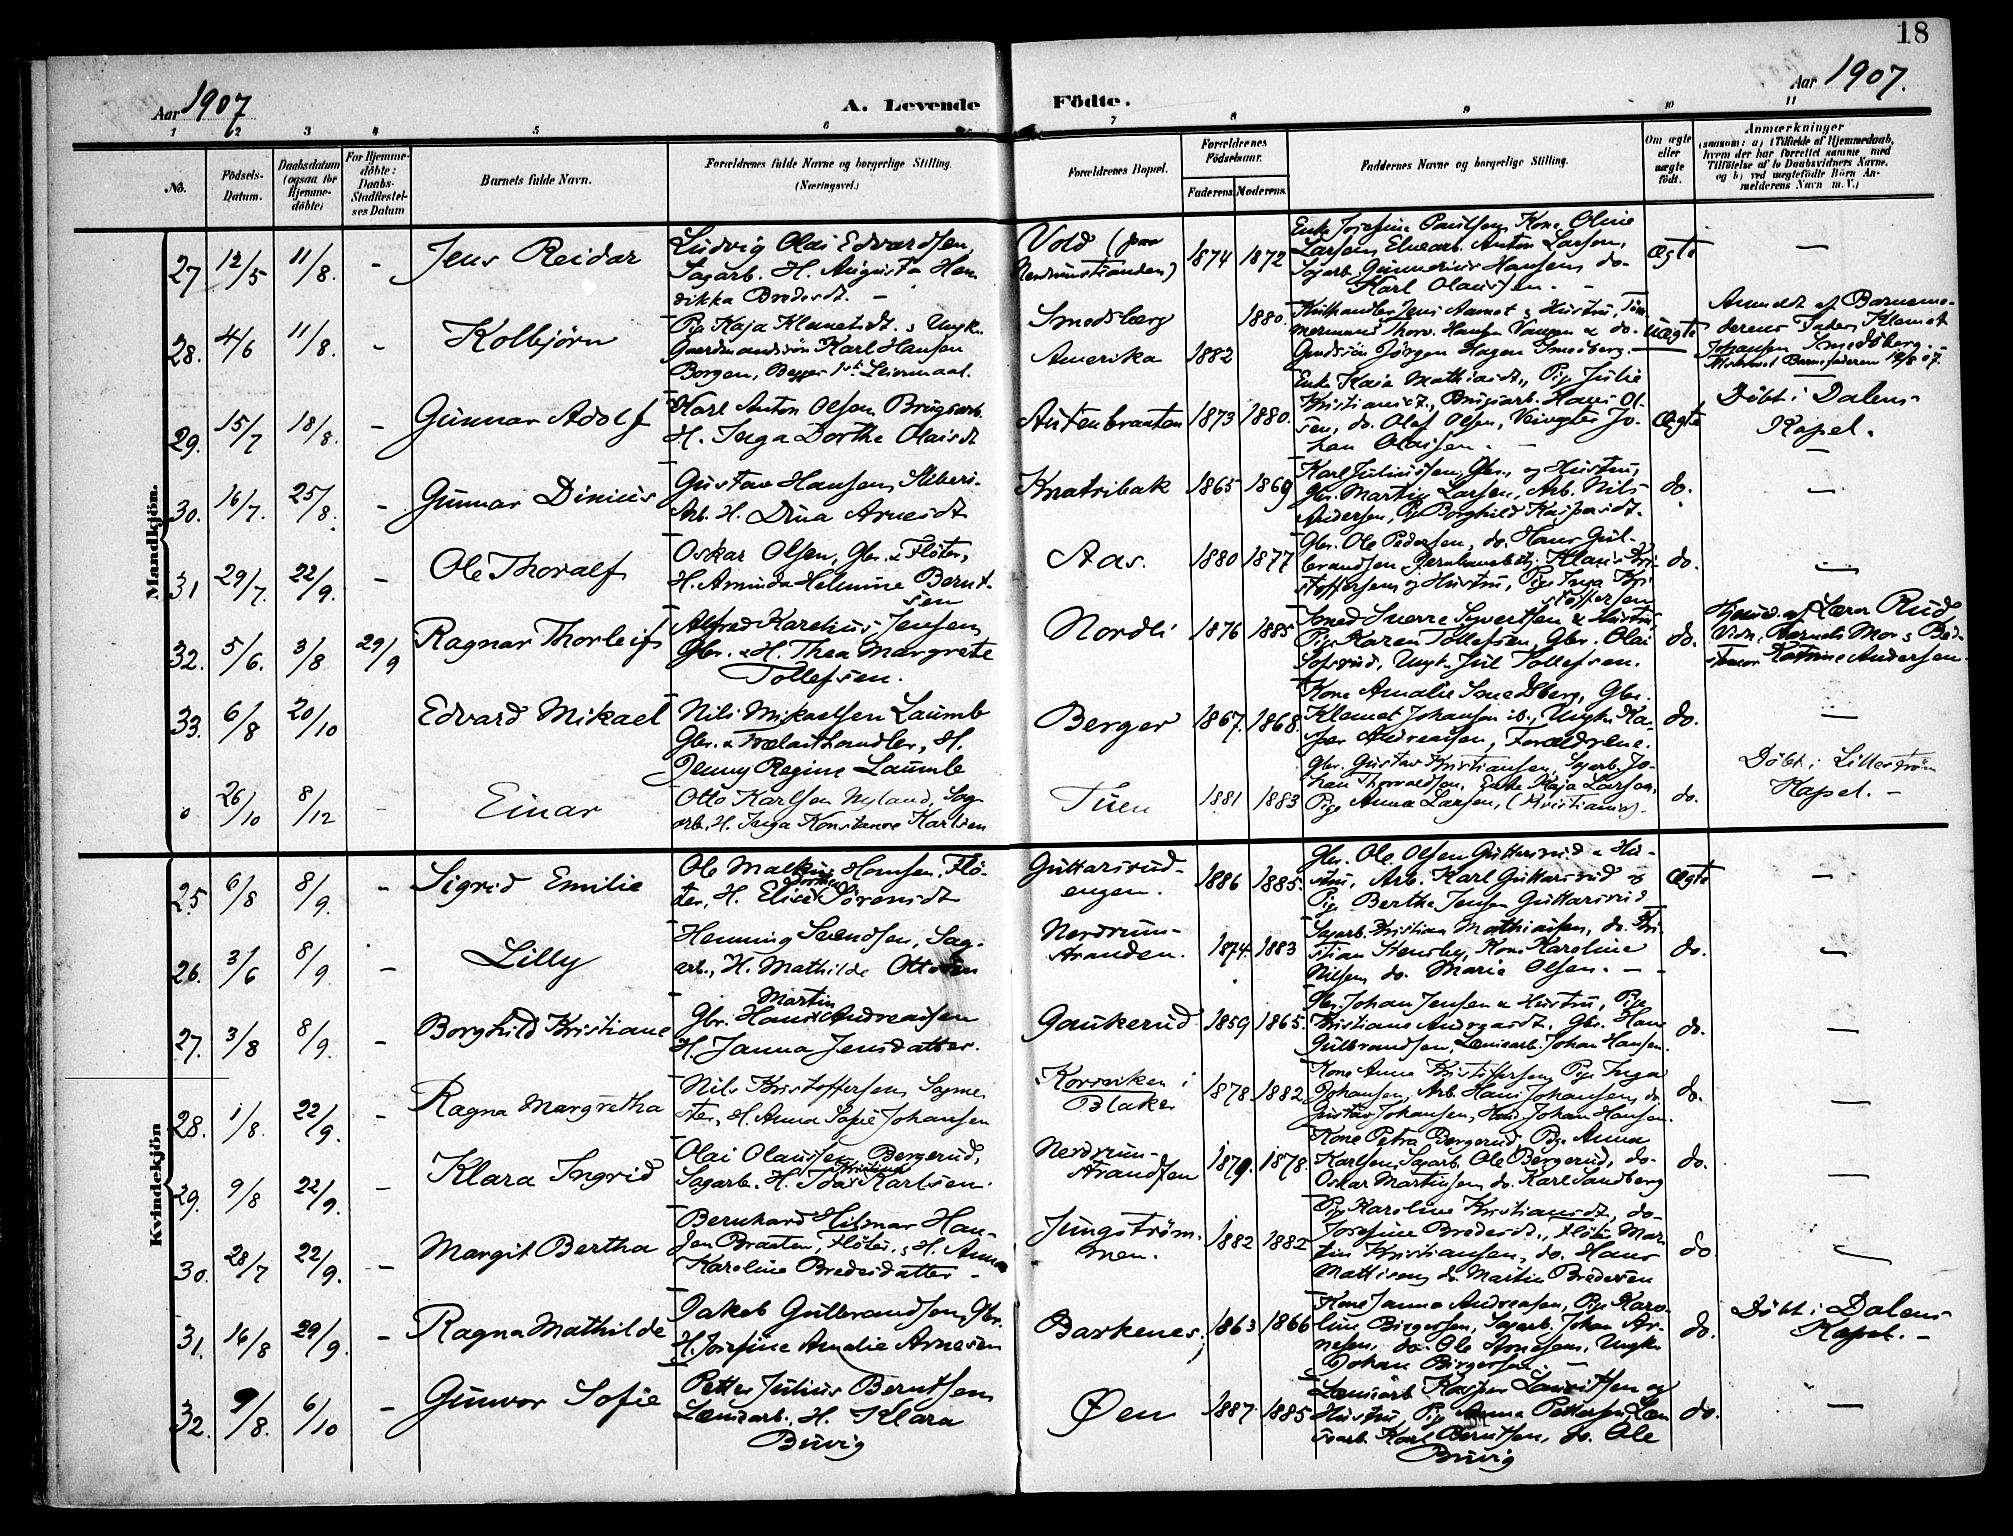 18
Aar 1907
A. Levende Födte.
Aar 1907.
1 2 3 4 5 6 7 8 9 10 11
No.
Födsels-Datum.
Daabsdatum (ogsaa for Hjemme-döbte)
For Hjemme-döbte: Daabs-Stadfæstel-ses Datum
Barnets fulde Navn.
Forældrenes fulde Navne og borgerlige Stilling. (Næringsvei.)
Forældrenes Bopæl.
Forældrenes Födselsaar.
Faderens. Moderens.
Faddernes Navne og borgerlige Stilling.
Om ægte eller uægte födt.
Anmærkninger
(saasom: a) i Tilfælde af Hjemmedaab,
hvem der har forrettet samme med
Tilföielse af to Daabsvidners Navne,
og b) ved uægtefödte Börn An-
melderens Navn m. V.)
Mandkjön.
27 12/5 11/8. - Jens Reidar
Ludvig Olai Edvardsen,
Sagarb. H. Augusta Hen
rikka Bredesdt. -
Vold (paa
Nerdrumstranden)
1874 1872
Enke Josefine Paulsen, Kone Oline
Larsen, Elvearb. Anton Larsen,
Sagarb. Gunnerius Hansen, do.
Karl Olaussen.
Ægte —
28. 4/6 11/8. - Kolbjörn
Pige Kaja Klemetsdt. & Ungk.
Gaardmandssön Karl Hansen
Borgen, Begges 1ste Leiermaal.
Smedsberg
Amerika 1882 1880.
Jens Aamot & Hustru, Töm
mermand Thorv. Hansen & do.
Jörgen Hagen Smedsberg. -
uægte
Anmeldt af Barnemo-
derens Fader Klemet
Johansen Smedsberg. -
29. 15/7 18/8. - Gunnar Adolf
Karl Anton Olsen Brugsarb.
H. Inga Dorthe Olaisdt
Autenbraaten 1873 1880.
Enke Kaia Mathiasdt., Pige Julie
Kristiansdt., Brugsarb. Hans Ol-
sen, do. Olaf Olsen, Veivogter Jo-
han Olaissen. -
Ægte
Döbt i Dalens
Kapel.
30. 16/7. 25/8. - Gunnar Dinius
Gustav Hansen, Stberi-
Arb. H. Dina Arnesdt
Knatribak 1865 1869
Karl Juliussen, Gbr., og Hustru,
Gbr. Martin Larsen, Arb. Nils
Andersen, Pige Borghild Kaspersdt.
do. —
31 29/7. 22/9. - Ole Thoralf
Oskar Olsen, Gbr. & Flöter,
H. Aminda Helmine Bernt-
sen
Aas. 1880 1877
Gbr. Ole Pedersen, do. Hans Gul-
brandsen Klaus Kri-
stoffersen og Hustru, Pige Inga Kri
stoffersen
do. —
32. 5/6. 3/8 29/9 Ragnar Thorleif
Alfred Karelius Jensen
Gbr. & H. Thea Margrete
Tollefsen.
Nordli 1876 1885
Smed Sverre Syvertsen & Hustru,
Pige Karen Tollefsen, Gbr. Olai
Ungk. Jul Tollefsen.
do.
Hjemd. af Lærer Rud
Vidn. Barnets Mor & Bed-
stemor Katrine Andersen.
33. 6/8 20/10 Edvard Mikael
Nils Mikaelsen Laumb
Gbr. & Trælasthandler, H.
Jenny Regine Laumb
Berger 1867. 1868.
Kone Amalie Smedsberg, Gbr.
Klemet Johansen ib., Ungk. Ka-
sper Andreassen, Forældrene.
do. —
0 26/10 8/12 - Einar
Otto Karlsen Nyland, Sag
arb. H. Inga Konstance Karlsen
Tuen 1881 1883
Gbr. Gustav Kristiansen, Sagarb. Jo-
han Thorvaldsen, Enke Kaja Larsen,
Pige Anna Larsen, (Kristiania).
do.
Döbt i Lilleström
Kapel. -
Kvindekjön
25. 6/8 8/9. - Sigrid Emilie
Ole Hansen, Flö-
ter, H. Elise Sörensdt
Guttersrud-
engen. 1886 1885.
Gbr. Ole Olsen Guttersrud & Hu-
stru, Arb. Karl Guttersrud &
Pige Bertha Jensen Guttersrud
Ægte —
26. 3/6 8/9. - Lilly
Henning Svendsen, Sag-
arb., H. Mathilde Ottosen
Nerdrum-
stranden. 1874. 1883
Sagarb. Kristian Mathiassen, do. Kri-
stian Stensby, Kone Karoline
Nilsen, do. Marie Olsen. -
do. —
27. 3/8 8/9. - Borghild Kristiane
Martin
Gbr. Hans Andreassen
H. Janna Jensdatter.
Gaukerud 1859 1865.
Gbr. Johan Jensen & Hustru, Pige
Kristiane Gbr. Hans
Gulbrandsen, Lænsearb. Johan Hansen.
do. —
28. 1/8. 22/9. - Ragna Margretha
Nils Kristoffersen, Sagme
ster, H. Anna Sofie Johansen
Korsviken i
Blaker 1878 1882
Kone Anna Kristoffersen, Pige Inga
Johansen, Arb. Hans Johansen, do.
Gustav Johansen, Johan Hansen.
do. —
29. 9/8 22/9. - Klara Ingrid
Olai Olaussen Bergerud,
Kristine
Sagarb. H. Ida Karlsen.
Nerdrum-
strandsen 1879. 1878.
Kone Petra Bergerud, Pige Anna
Karlsen, Sagarb. Ole Bergerud, do.
Oskar Martinsen, do. Karl Sandberg
do. —
30. 28/7 22/9. - Margit Bertha
Bernhard Hilmar Han-
sen Braaten, Flöter, & H. Anna
Karoline Bredesdatter -
Jungström-
men. 1882 1882
Pige Karoline Kristiansdt, do.
Josefine Bredesdt., Flöter Mar-
tin Kristiansen, do. Hans
Mattisen, do. Martin Bredesen
do. —
31. 16/8 29/9. - Ragna Mathilde
Jakob Gulbrandsen, Gbr.
H. Josefine Amalie Arnesen
Barkenes. 1863 1866
Kone Janna Andreasen, Pige Karo-
line Birgersen, Sagarb. Johan Ar-
nesen, do. Ole Arnesen, Ungk.
Johan Birgersen. -
do.
Döbt i Dalens
Kapel. -
32. 9/8. 6/10 - Gunvor Sofie
Petter Julius Berntsen
Lænsearb. H. Klara
Buvig
Øen 1887. 1885
Lænsearb. Kasper Lauritsen og
Hustru, Pige Anna Pettersen, Læn
searb. Karl Berntsen, do. Ole
Buvig
do. —